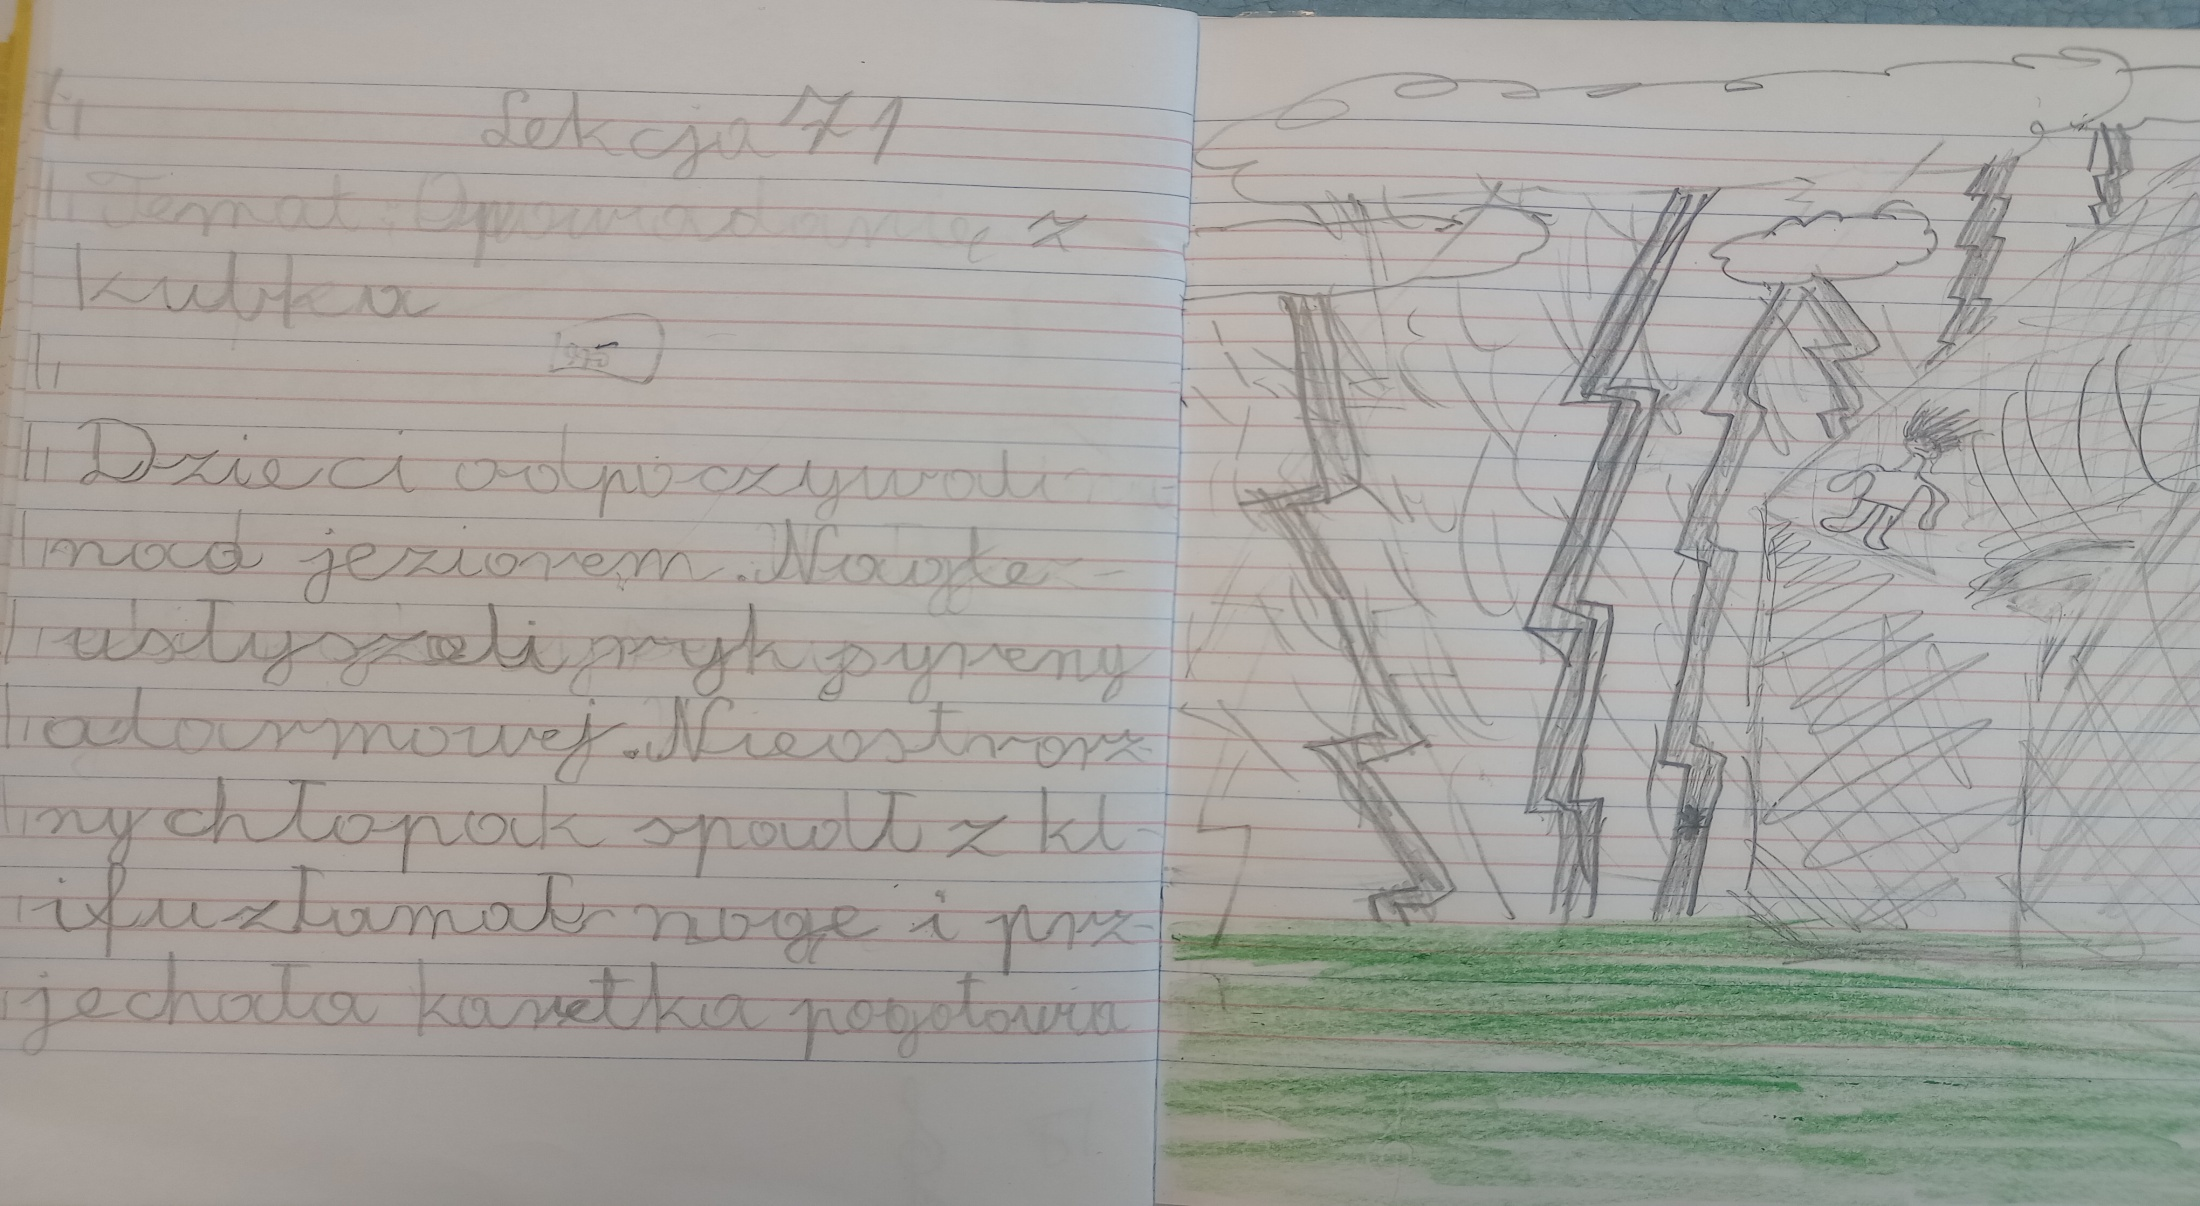 Lekcja 71
Temat: Opowiadanie z
kubka
Dzieci odpoczywali
nad jeziorem. Nagle
usłyszeli ryk syreny
alarmowej. Nieostroż
ny chłopak spadł z kl-
ifu złamał nogę i prz-
jechała karetka pogotowia